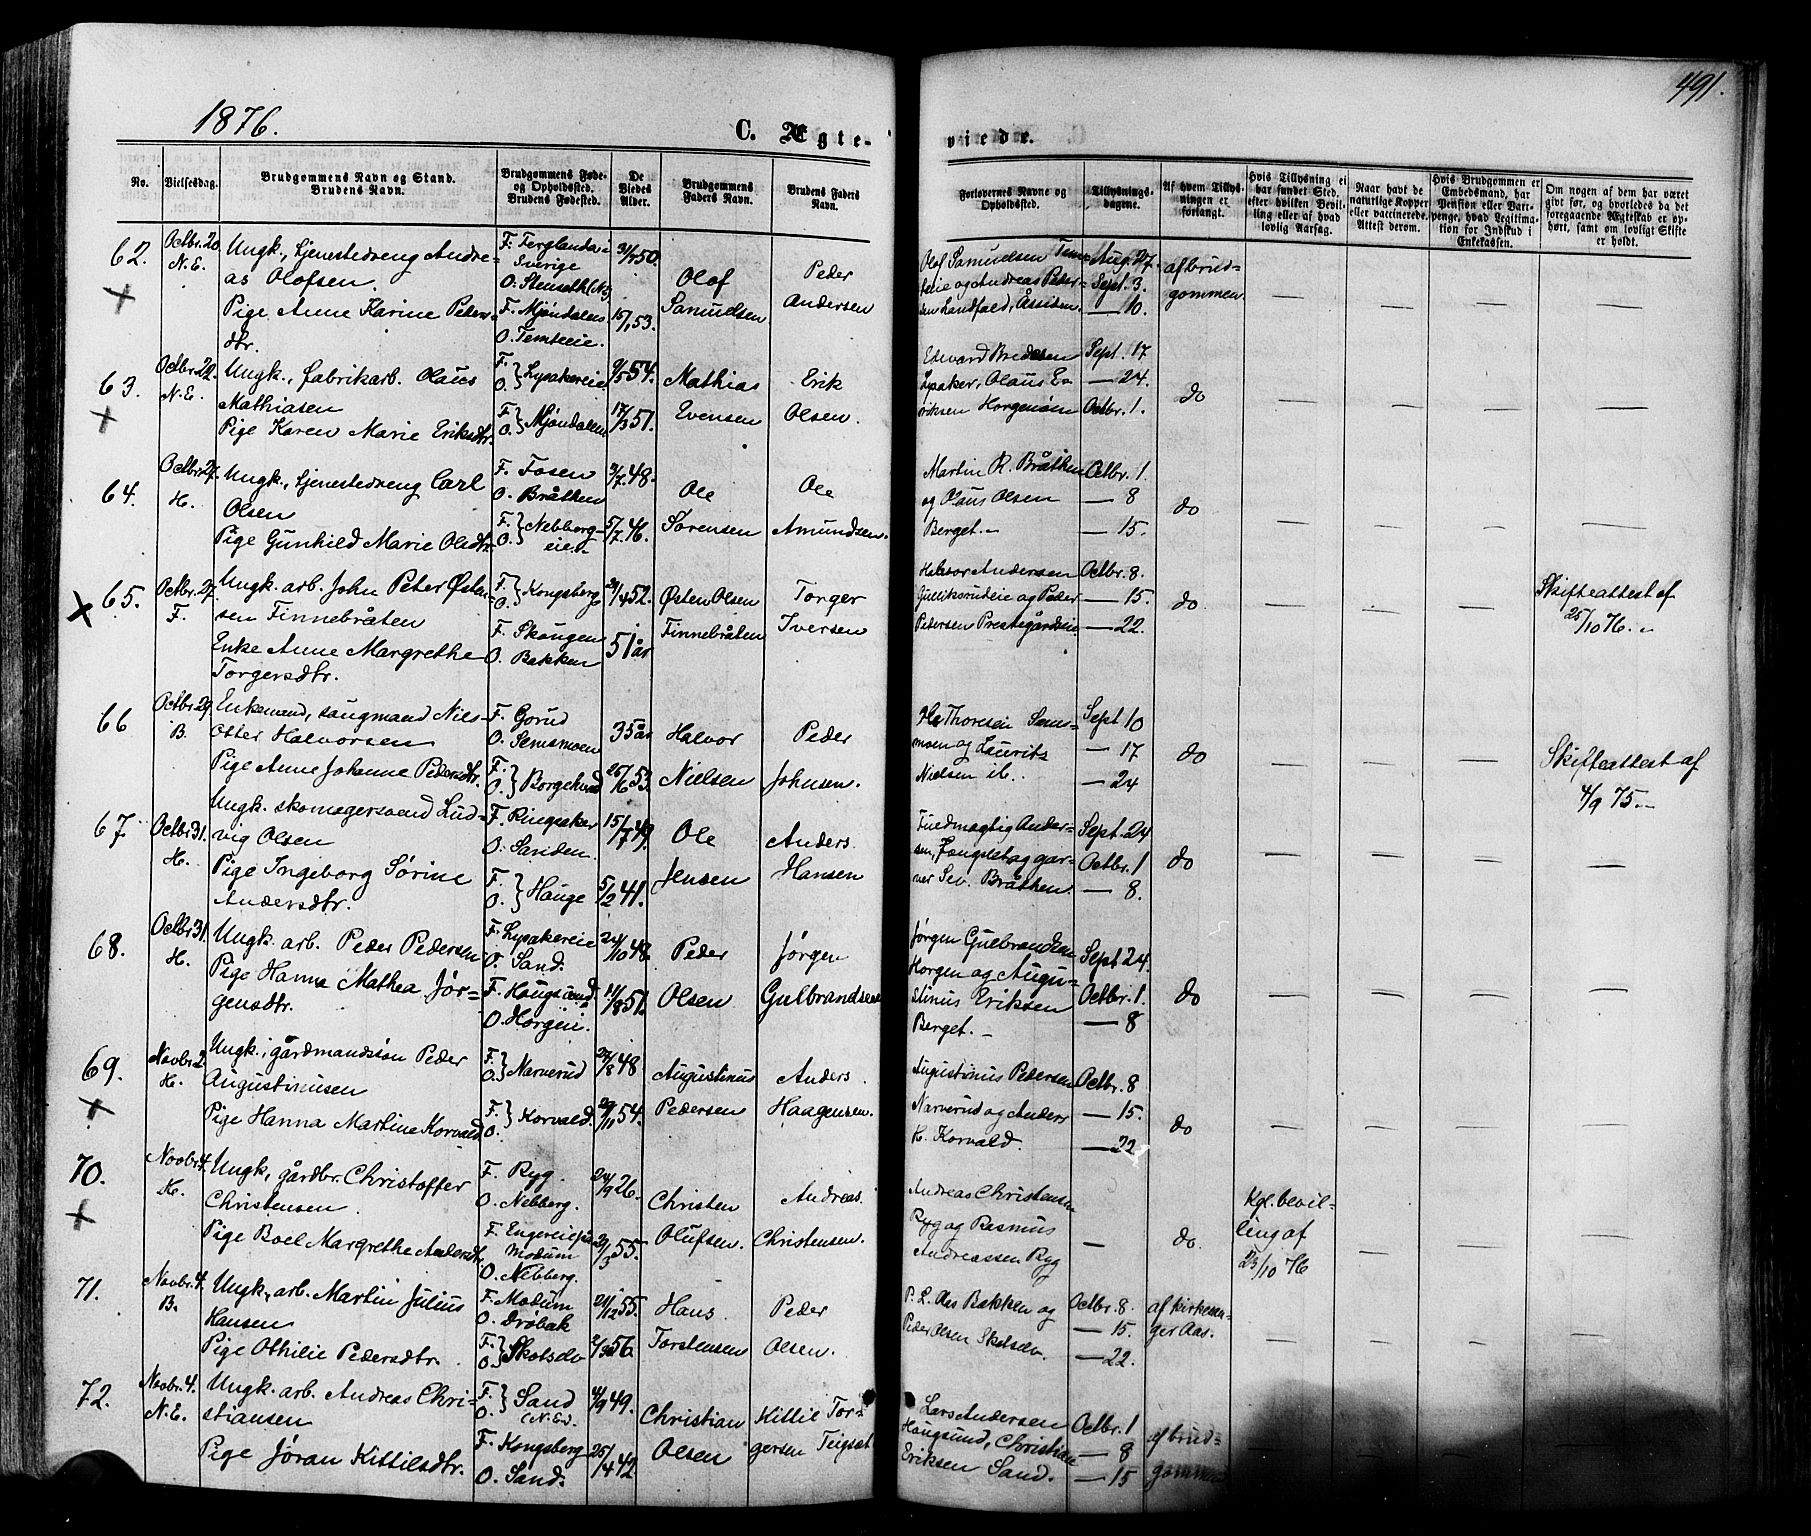 1876.
C. Ægte-
viede.
491.
No.
Vielsesdag.
Brudgommens Navn og Stand.
Brudens Navn.
Brudgommens Føde-
og Opholdssted.
Brudens Fødested.
De
Viedes
Alder.
Brudgommens
Faders Navn.
Brudens Faders
Navn.
Forlovernes Navne og
Opholdssted.
Tillysnings-
dagene.
Af hvem Tillys-
ningen er
forlangt.
Hvis Tillysning ei
har fundet Sted,
efter hvilken Bevil-
ling eller af hvad
lovlig Aarsag.
Naar havt de
naturlige Kopper
eller vaccinerede.
Attest derom.
Hvis Brudgommen er
Embedsmand, har
Pension eller Var-
penge, hvad Legitima-
tion for Indskud i
Enkekassen.
Om nogen af dem har været
givt før, og hvorledes da det
foregaaende Ægteskab er op-
hørt, samt om lovligt Skifte
er holdt.
62.
Octbr. 20
N.E.
Ungk., tjenestedreng Andre-
as Olofsen.
Pige Anne Karine Peders-
dtr.
F. Ferglanda i
Sverige
O. Stenseth (N.E.)
F. Mjøndalen
O. Temteeie.
50.
15/1 53.
Olof
Samuelsen
Peder
Andersen
Olof Samuelsen Temte-
eie og Andreas Peder-
sen Landfald, Åssiden
Aug. 27.
Sept. 3.
— 10.
af brud-
gommen
63.
Octbr. 22.
N.E.
Ungk., fabrikarb. Olaus
Mathiasen
Pige Karen Marie Eriksdtr.
F. O. } Lysakereie
F. O. } Mjøndalen
9/5 54.
17/3 51.
Mathias
Evensen
Erik
Olsen.
Edvard Bredesen
Lysaker, Olaus E-
riksen Horgenåsen
Sept. 17
— 24.
Octbr. 1.
do
64.
Octbr. 27.
H.
Ungk., tjenestedreng Carl
Olsen
Pige Gunhild Marie Olsdtr.
F. Fosen
O. Bråthen
F. O. } Nebberg-
eie.
3/7 48.
5/7 46.
Ole
Sørensen
Ole
Amundsen.
Martin R. Bråthen
og Olaus Olsen
Berget.
Octbr. 1
— 8
— 15.
do
65.
Octbr. 27.
F.
Ungk. arb. John Peter Østen-
sen Finnebråten
Enke Anne Margrethe
Torgersdtr.
F. O. } Kongsberg
F. Skougen
O. Bakken
52.
51 år
Østen Olsen
Finnebråten
Torger
Iversen
Halvor Andersen
Gulliksrudeie og Peder
Pedersen Prestegårdseie
Octbr. 8.
— 15.
— 22.
do
Skifteattest af
25/10 76.
66
Octbr. 29
B.
Enkemand, saugmand Niels
Otter Halvorsen
Pige Anne Johanne Pedersdtr.
F. Gorud
O. Semsmoen
F. O. } Borgekvad
35 år
26/6 53.
Halvor
Nielsen
Peder
Johnsen.
Ole Thoresen Sems-
moen og Laurits
Nielsen ib.
Sept 10
— 17
— 24
do
Skifteattest af
4/9 75.
67
Octbr. 31.
H.
Ungk. skomagersvend Lud-
vig Olsen
Pige Ingeborg Sørine
Andersdtr.
F. Ringsaker
O. Sanden.
F. O. } Hauge
15/7 49.
5/2 41.
Ole
Jensen
Anders
Hansen
Fuldmægtig Ander-
sen, Fængslet og gar-
ver Sev. Bråthen.
Sept. 24
Octbr. 1
— 8.
do
68.
Octbr. 31.
H.
Ungk. arb. Peder Pedersen
Pige Hanna Mathea Jør-
gensdtr.
F. Lysakereie
O. Sand.
F. Hougsund
O. Horgen.
24/10 48.
11/8 51.
Peder
Olsen
Jørgen
Gulbrandsen
Jørgen Gulbrandsen
Horgen og Augu-
stinus Eriksen
Berget.
Sept 24.
Octbr. 1.
— 8
do
69.
Novbr. 2.
H.
Ungk., gårdmandssøn Peder
Augustinusen
Pige Hanna Martine Korvald
F. O. } Narverud
F. O. } Korvald.
27/8 48
29/11 54.
Augustinus
Pedersen
Anders
Haagensen.
Augustinus Pedersen
Narverud og Anders
H. Korvald.
Octbr. 8
— 15.
— 22.
do
70.
Novbr. 4.
H.
Ungk., gårdbr. Christoffer
Christensen
Pige Boel Margrethe Andersdtr.
F. Ryg.
O. Nebberg.
F. Engereie på
Modum
O. Nebberg.
24/9 26.
29/3 55.
Christen
Olufsen.
Andreas
Christensen.
Andreas Christensen
Ryg og Rasmus
Andreassen Ryg
—
do.
Kgl. bevil-
ling af
23/10 76
71.
Novbr. 4.
B.
Ungk., arb. Martin Julius
Hansen
Pige Othilie Pedersdtr.
F. Modum
O. Drøbak
F. O. } Skotselv
21/12 55.
56.
Hans
Torstensen
Peder
Olsen.
P. L. Aas Bakken og
Peder Olsen Skotselv.
Octbr. 8.
— 15.
— 22.
af kirkesan-
ger Aas.
72.
Novbr. 4.
N.E.
Ungk. arb. Andreas Chri-
stiansen
Pige Jøran Kittilsdtr.
F. O. } Sand
(N.E.)
F. Kongsberg
O. Sand.
4/9 49.
25/4 42
Christian
Olsen
Kittil Tor-
gersen Teigset
Lars Andersen
Hougsund, Christian
Eriksen Sand.
Octbr. 1
— 8
— 15
af brud-
gommen